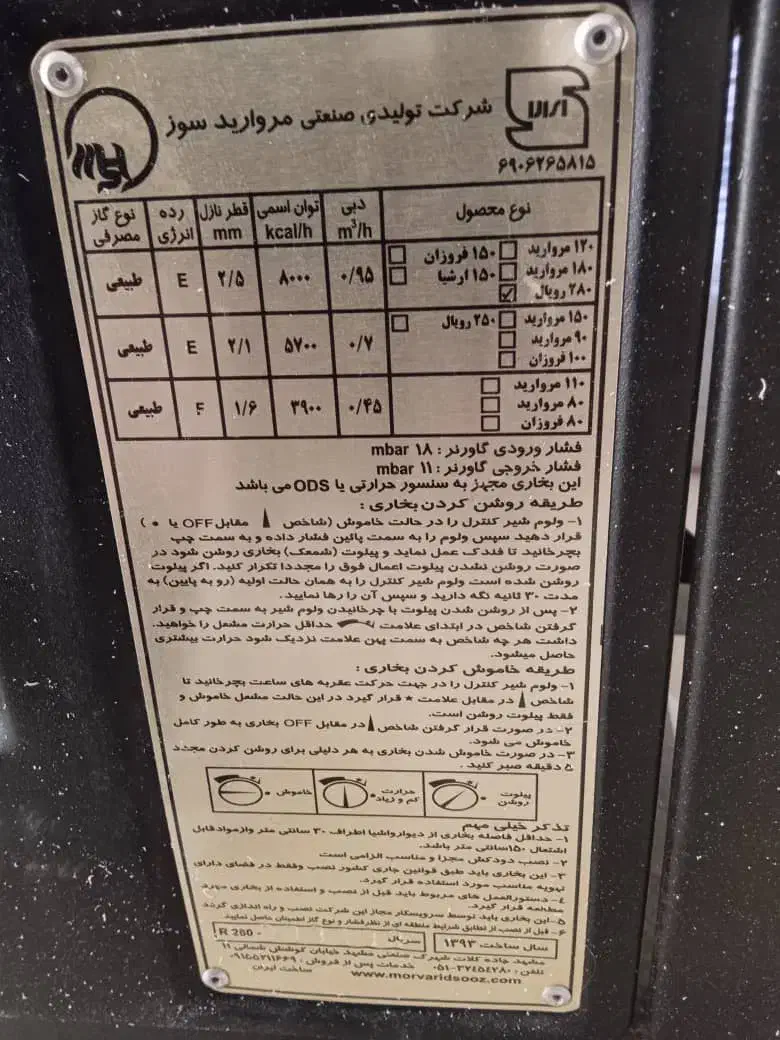 شرکت تولیدی صنعتی مروارید سوز
۶۹۰۶۲۶۵۸۱۵
نوع محصول | دبی m³/h | توان اسمی kcal/h | قطر نازل mm | رده انرژی | نوع گاز مصرفی
۱۲۰ مروارید ۱۵۰ فروزان
۱۸۰ مروارید ۱۵۰ ارشیا
۲۸۰ رویال
۰/۹۵ | ۸۰۰۰ | ۲/۵ | E | طبیعی
۱۵۰ مروارید ۲۵۰ رویال
۹۰ مروارید
۱۰۰ فروزان
۰/۷ | ۵۷۰۰ | ۲/۱ | E | طبیعی
۱۱۰ مروارید
۸۰ مروارید
۸۰ فروزان
۰/۴۵ | ۳۹۰۰ | ۱/۶ | E | طبیعی
فشار ورودی گاورنر : ۱۸ mbar
فشار خروجی گاورنر : ۱۱ mbar
این بخاری مجهز به سنسور حرارتی یا ODS می باشد
طریقه روشن کردن بخاری :
۱- ولوم شیر کنترل را در حالت خاموش (شاخص مقابل OFF یا ●)
قرار دهید سپس ولوم را به سمت پائین فشار داده و به سمت چپ
بچرخانید تا فندک عمل نماید و پیلوت (شمعک) بخاری روشن شود در
صورت روشن نشدن پیلوت اعمال فوق را مجددا تکرار کنید. اگر پیلوت
روشن شده است ولوم شیر کنترل را به همان حالت اولیه (رو به پایین) به
مدت ۳۰ ثانیه نگه دارید و سپس آن را رها نمایید.
۲- پس از روشن شدن پیلوت با چرخانیدن ولوم شیر به سمت چپ و قرار
گرفتن شاخص در ابتدای علامت حداقل حرارت مشعل را خواهید.
داشت هر چه شاخص به سمت پهن علامت نزدیک شود حرارت بیشتری
حاصل میشود.
طریقه خاموش کردن بخاری :
۱- ولوم شیر کنترل را در جهت حرکت عقربه های ساعت بچرخانید تا
شاخص در مقابل علامت * قرار گیرد در این حالت مشعل خاموش و
فقط پیلوت روشن است.
۲- در صورت قرار گرفتن شاخص در مقابل OFF بخاری به طور کامل
خاموش می شود.
۳- در صورت خاموش شدن بخاری به هر دلیلی برای روشن کردن مجدد
۵ دقیقه صبر کنید .
پیلوت روشن | حرارت کم و زیاد | خاموش
تذکر خیلی مهم
۱- حداقل فاصله بخاری از دیوار واشیا اطراف ۳۰ سانتی متر وازمواد قابل
اشتعال ۱۵۰ سانتی متر باشد.
۲- نصب دودکش مجزا و مناسب الزامی است
۳- این بخاری باید طبق قوانین جاری کشور نصب وفقط در فضای دارای
تهویه مناسب مورد استفاده قرار گیرد.
۴- دستورالعمل های مربوط باید قبل از نصب و استفاده از بخاری مورد
مطالعه قرار گیرد.
۵- این بخاری باید توسط سرویسکار مجاز این شرکت نصب و راه اندازی گردد
۶- قبل از نصب از تطابق شرایط منطقه ای از نظرفشار و نوع گاز اطمینان حاصل نمایید
سال ساخت ۱۳۹۳ | سریال R 280 -
مشهد جاده کلات شهرک صنعتی مشهد خیابان کوشش شمالی ۱۱
تلفن : ۳۲۴۵۴۲۸۰-۰۵۱ خدمات پس از فروش : ۰۹۱۵۵۲۱۱۶۶۹
www.morvaridsooz.com ساخت ایران